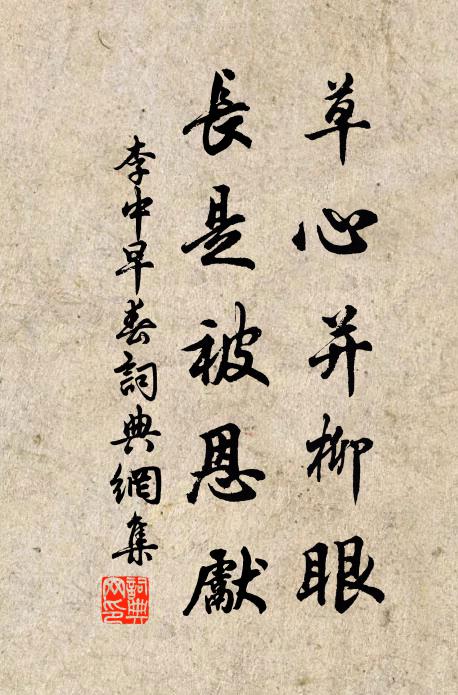 草心并柳眼
長是被恩獻
李中早春詞典網集
詞典網印